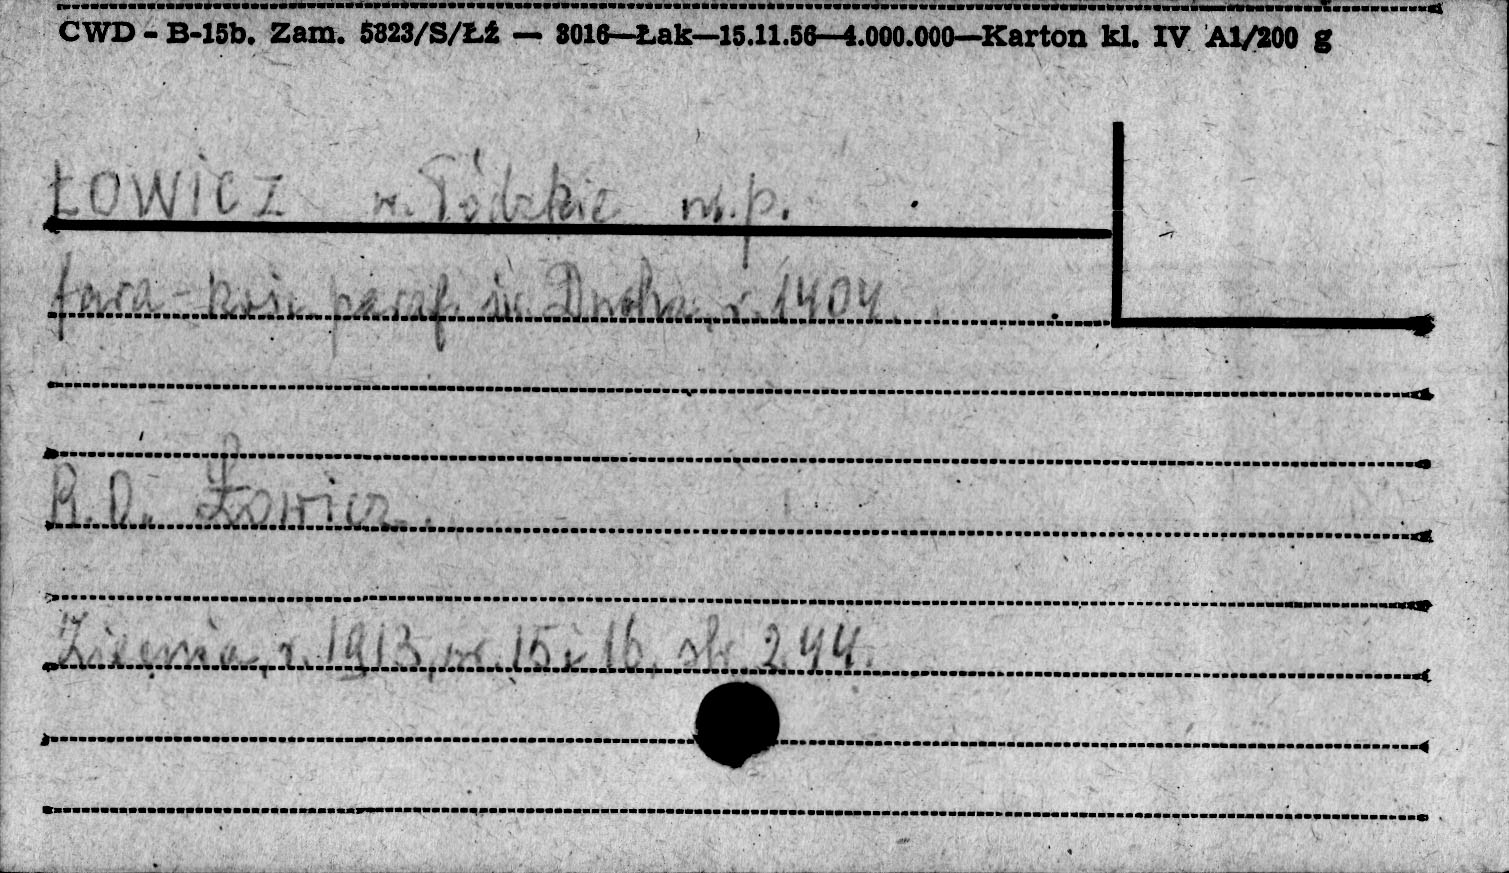 CWD - B-15b. Zam. 5823/S/ŁŹ — 3016—Łak—15.11.56—4.000.000—Karton kl. IV A1/200 g
ŁOWICZ w. Łódzkie m.p.
fara - kośc. paraf. św. Ducha, r. 1404.
R.D. Łowicz.
Ziemia, r. 1913, nr. 15 i 16, str. 244.